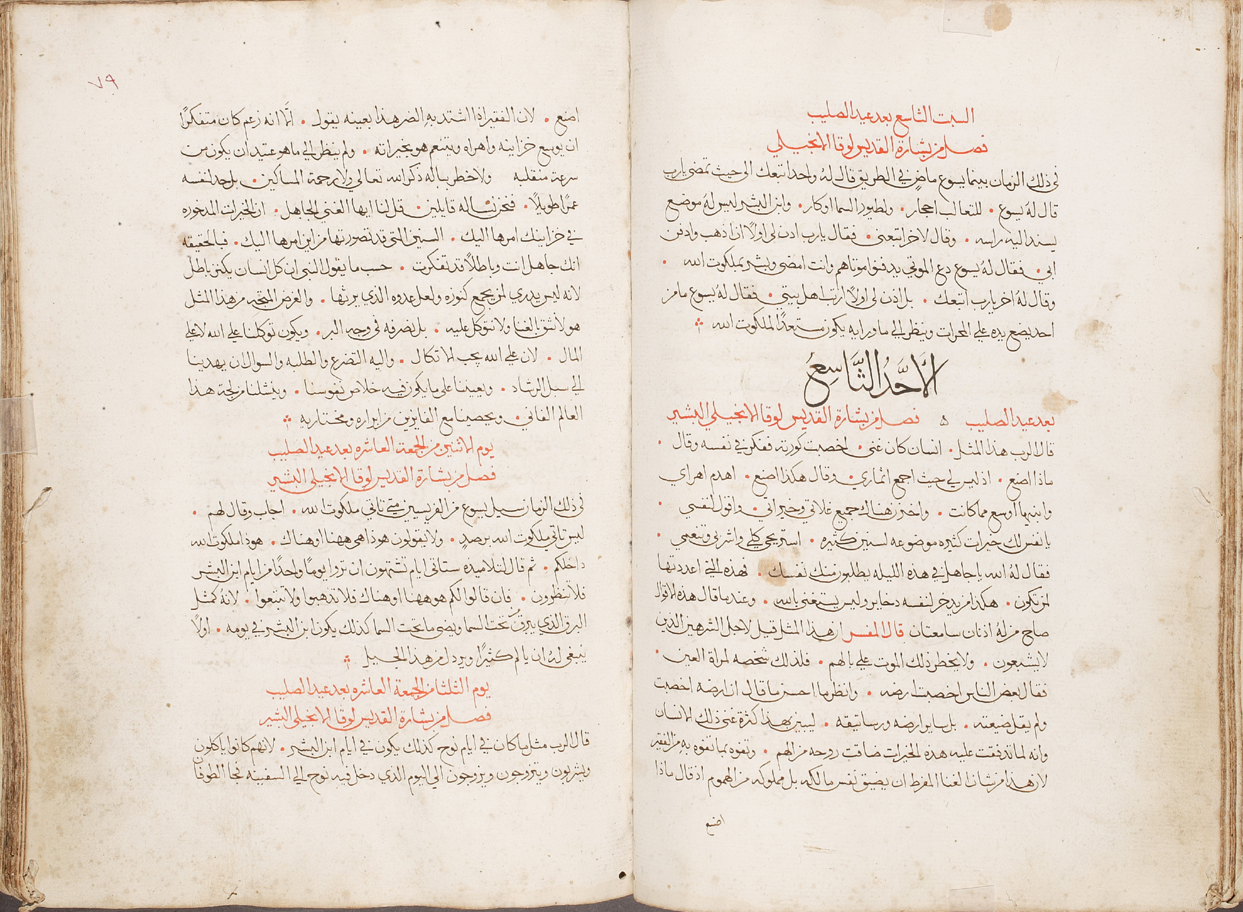 السبت التاسع بعد عيد الصليب
فصل من بشارة القديس لوقا الانجيلي
في ذلك الزمان بينما يسوع ماضٍ في الطريق قال له واحد اتبعك الى حيث تمضي يارب
قال له يسوع • للثعالب احجار • ولطيور السما اوكار • وابن البشر ليس له موضع
يسند اليه راسه • وقال لاخر اتبعني • فقال يارب ادن لي اولًا ان اذهب وادفن
ابي • فقال له يسوع دع الموتى يدفنوا موتاهم وانت امضي وبشر بملكوت الله •
وقال له اخر يارب اتبعك • بل اذن لي اولًا ارتب اهل بيتي • فقال له يسوع ما من
احد يضع يده على المحرات وينظر الى ما ورايه يكون مستعدًا لملكوت الله
الأَحَدُ الثَّاسِعُ
بعد عيد الصليب فصل من بشارة القديس لوقا الانجيلي البشير
قال الرب هذا المثل • انسان كان غني • اخصبت كورته ففكر في نفسه وقال •
ماذا اصنع • اذ ليس لي حيث اجمع اثماري • وقال هكذا اصنع • اهدم اهراي
وابنيها اوسع مما كانت • واخزن هناك جميع غلاتي وخيراتي • واقول لنفسي •
يا نفس لك خيرات كثيره موضوعه لسنين كثيره • استريحي كلي واشربي وتنعمي •
فقال له الله يا جاهل في هذه الليله يطلبون منك نفسك • فهذه التي اعددتها
لمن تكون • هكذا من يدخر لنفسه دخاير وليس يستغني بالله • وعندما قال هذه الاقوال
صاح من له اذنان سامعتان قال المفسر ان هذا المثل قيل لاجل الشرهين الذين
لا يشبعون • ولا يخطر ذلك الموت على بالهم • فلذلك شخصه لمراة العين •
فقال بعض الناس اخصبت ارضه • وانظر ما احسن ما قال ان ارضه اخصبت
ولم يقل ضيعته • بل ساير ارضه ورساتيقه • ليبين بهذا كثرة غنى ذلك الانسان
وانه لما تدفقت عليه هذه الخيرات ضاقت روحه من الهم • وتفوه بما تفوه به من الفقير
لان هذا من شان الغنا المفرط ان يضيق نفس مالكه بل مملوكه من الهموم اذ قال ماذا
اصنع
٧٩
اصنع • لان الفقير اذا اشتد به الضر هذا بعينه يقول • الَّا انه زعم كان متفكرًا
ان يوسع خزاينه واهراه ويتنعم هو بخيراته • ولم ينظر الى ما هو عتيد ان يكون من
سرعة منقلبه ولا خطر بباله ذكر الله تعالى ولا برحمة المساكين • بل حد لنفسه
عمرًا طويلًا • فنحن نساله قايلين • قل لنا ايها الغني الجاهل • ان الخيرات المدخوره
في خزاينك امرها اليك • السنين التي قد تصورتها من اين امرها اليك • فبالحقيقه
انك جاهل انت وباطلًا قد تفكرت • حسب ما يقول النبي ان كل انسان يكنز باطل
لانه ليس يدري لمن يجمع كنوزه ولعل عدوه الذي يرثها • والغرض المتجه من هذا المثل
هو لا نثق بالغنا ولا نتوكل عليه • بل نصرفه في وجه البر • ويكون توكلنا على الله لا على
المال • لان على الله يجب الاتكال • واليه التضرع والطلبه والسوال ان يهدينا
الى سبل الرشاد • ويعيننا على ما يكون فيه خلاص نفوسنا • وينشلنا من لجة هذا
العالم الفاني • ويحصينا مع الفايزين من ابراره ومختاريه
يوم الاثنين من الجمعة العاشره بعد عيد الصليب
فصل من بشارة القديس لوقا الانجيلي البشير
في ذلك الزمان سيل يسوع من الفريسيين متى تاتي ملكوت الله • اجاب وقال لهم •
ليس تاتي ملكوت الله برصدٍ • ولا يقولون هوذا هي ههنا او هناك • هوذا ملكوت الله
داخلكم • ثم قال لتلاميذه ستاتي ايام تشتهون ان تروا يومًا واحدًا من ايام ابن البشر
فلا تنظرون • فان قالوا لكم هو ههنا او هناك فلا تذهبوا ولا تتبعوا • لانه كمثل
البرق الذي يبرق تحت السما ويضي ما تحت السما كذلك يكون ابن البشر في يومه • اولًا
ينبغي له ان يالم كثيرًا ويرذل من هذا الجيل
يوم الثلثا من الجمعة العاشره بعد عيد الصليب
فصل من بشارة القديس لوقا الانجيلي البشير
قال الرب مثل ما كان في ايام نوح كذلك يكون في ايام ابن البشر • لانهم كانوا ياكلون
ويشربون ويتزوجون ويزوجون الى اليوم الذي دخل فيه نوح الى السفينه فجا الطوفان